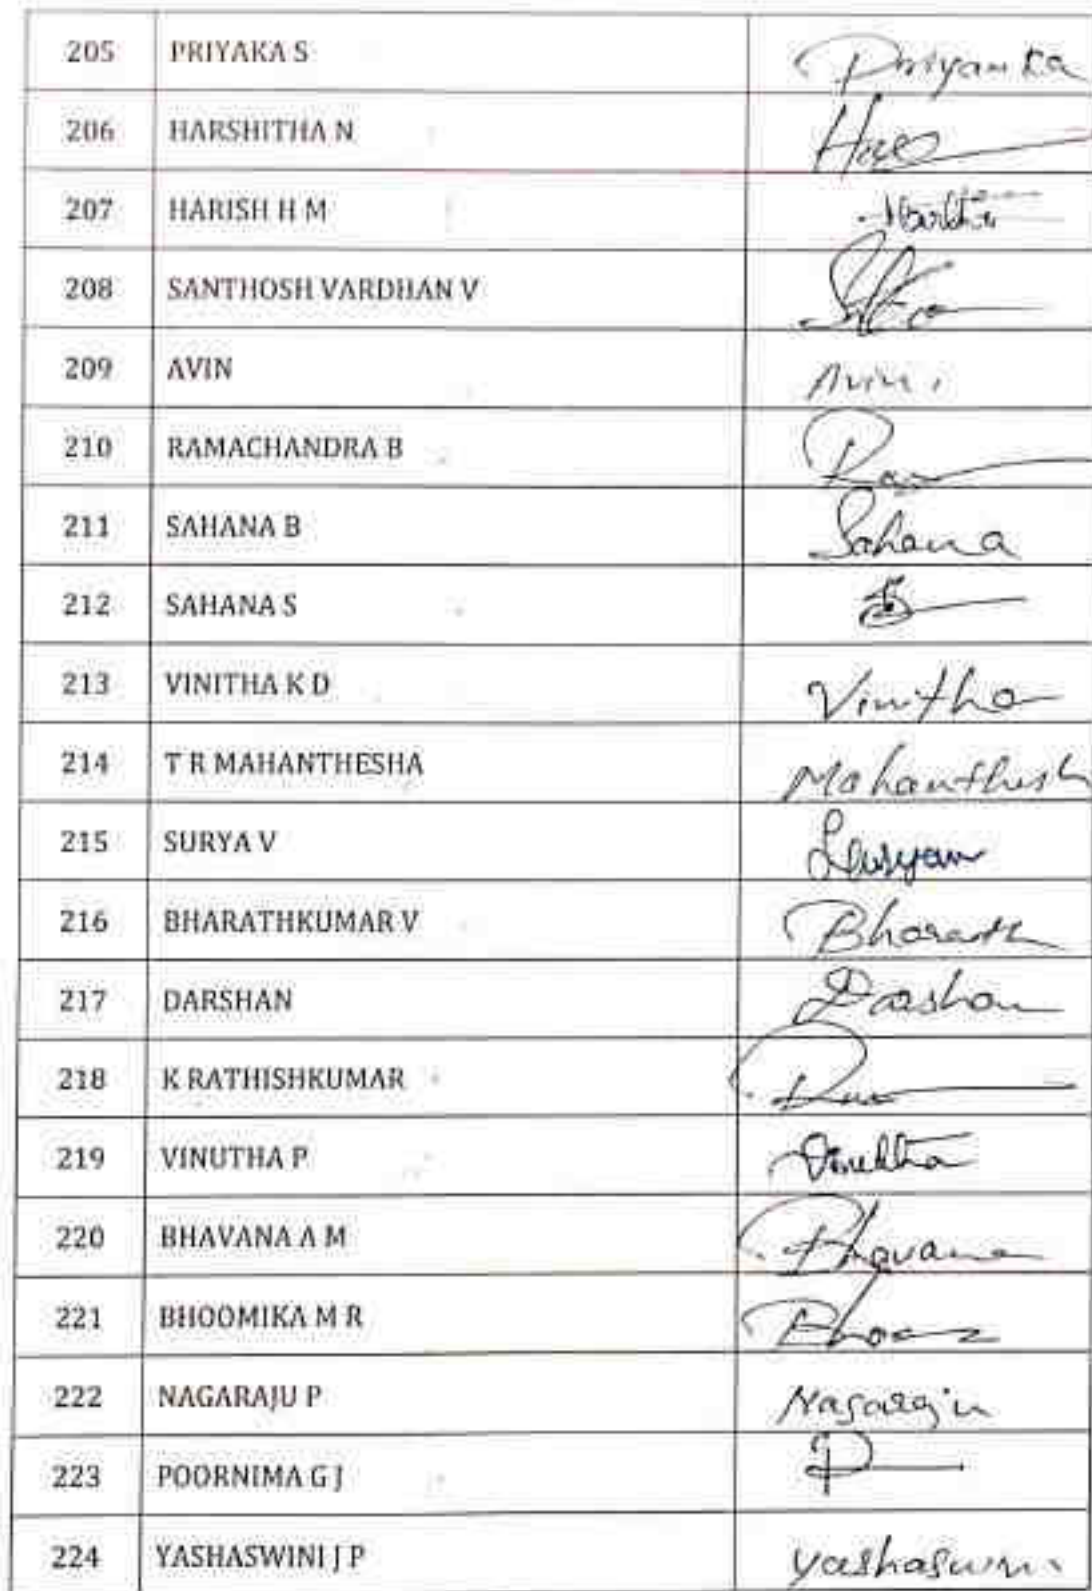 205 PRIYAKA S Priyanka
206 HARSHITHA N
207 HARISH H M
208 SANTHOSH VARDHAN V
209 AVIN Avin
210 RAMACHANDRA B
211 SAHANA B Sahana
212 SAHANA S
213 VINITHA K D Vinitha
214 T R MAHANTHESHA Mahanthesh
215 SURYA V
216 BHARATHKUMAR V Bharath
217 DARSHAN Darshan
218 K RATHISHKUMAR
219 VINUTHA P
220 BHAVANA A M Bhavana
221 BHOOMIKA M R
222 NAGARAJU P Nagaraju
223 POORNIMA G J
224 YASHASWINI J P Yashaswini